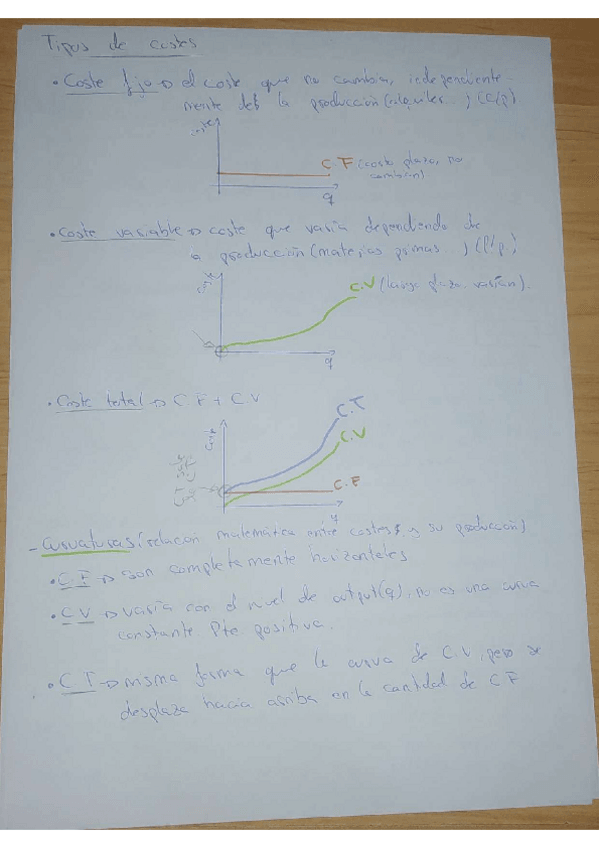 Tipos de costes
• Coste fijo → el coste que no cambia, independiente-
mente de la producción (alquileres...) (C/p)
coste
C.F (corto plazo, no
cambian)
q
• Coste variable → coste que varia dependiendo de
la producción (materias primas...) (l/p)
coste
C.V (largo plazo varían).
q
• Coste total → C.F + C.V
coste
C.T
C.V
C.F
q
- Curvaturas (relación matemática entre costes y su producción)
• C.F → son completamente horizontales
• C.V → varía con el nivel de output (q), no es una curva
constante Pte positiva.
• C.T → misma forma que la curva de C.V, pero se
desplaza hacia arriba en la cantidad de CF